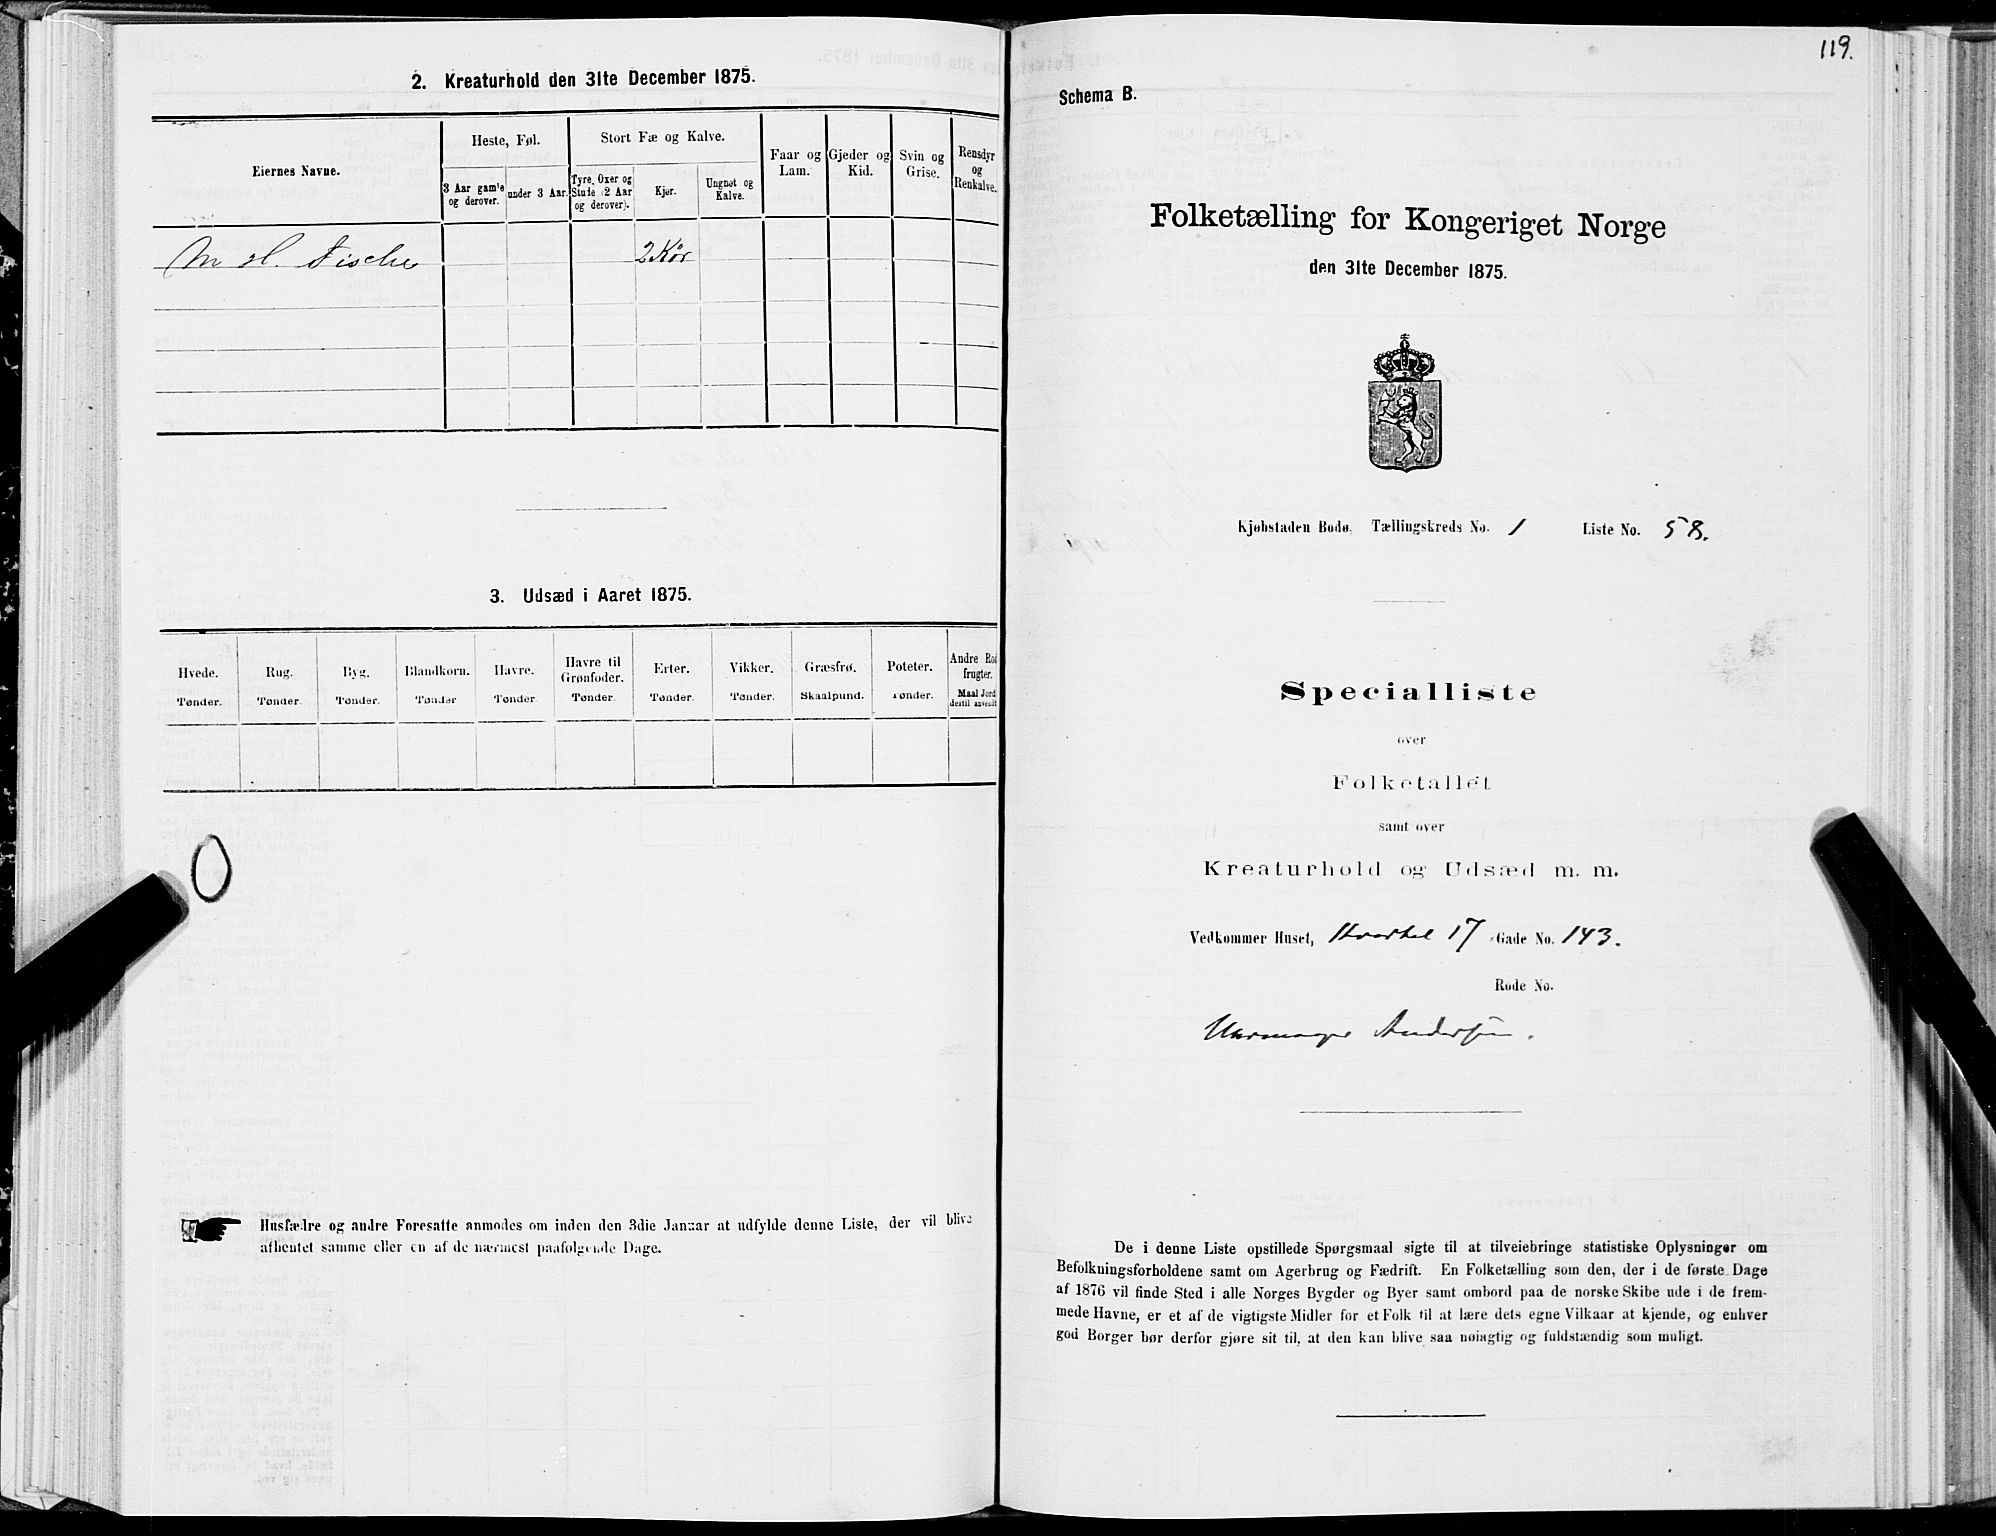 2. Kreaturhold den 31te December 1875.
Eiernes Navne.
Heste, Føl.
3 Aar gamle og derover.
under 3 Aar.
Stort Fæ og Kalve.
Tyre, Oxer og Stude (2 Aar og derover).
Kjør.
Ungnøt og Kalve.
Faar og Lam.
Gjeder og Kid.
Svin og Grise.
Rensdyr og Renkalve.
M H. Fischer
2 Kør
3. Udsæd i Aaret 1875.
Hvede. Rug. Byg. Blandkorn. Havre. Havre til Grønfoder. Erter. Vikker. Græsfrø. Poteter. Andre Rodfrugter.
Tønder. Tønder. Tønder. Tønder Tønder. Tønder. Tønder. Tønder. Skaalpund. Tønder. Maal Jord dertil anvendt
Husfædre og andre Foresatte anmodes om inden den 3die Januar at udfylde denne Liste, der vil blive
afhentet samme eller en af de nærmest paafølgende Dage.
119.
Schema B.
Folketælling for Kongeriget Norge
den 31te December 1875.
Kjøbstaden Bodø. Tællingskreds No. 1 Liste No. 58.
Specialliste
over
Folketallet
samt over
Kreaturhold og Udsæd m. m.
Vedkommer Huset, Kvartal 17 Gade No. 143.
Rode No.
Uhrmager Andersen.
De i denne Liste opstillede Spørgsmaal sigte til at tilveiebringe statistiske Oplysninger om
Befolkningsforholdene samt om Agerbrug og Fædrift. En Folketælling som den, der i de første Dage
af 1876 vil finde Sted i alle Norges Bygder og Byer samt ombord paa de norske Skibe ude i de frem-
mede Havne, er et af de vigtigste Midler for et Folk til at lære dets egne Vilkaar at kjende, og enhver
god Borger bør derfor gjøre sit til, at den kan blive saa nøiagtig og fuldstændig som muligt.